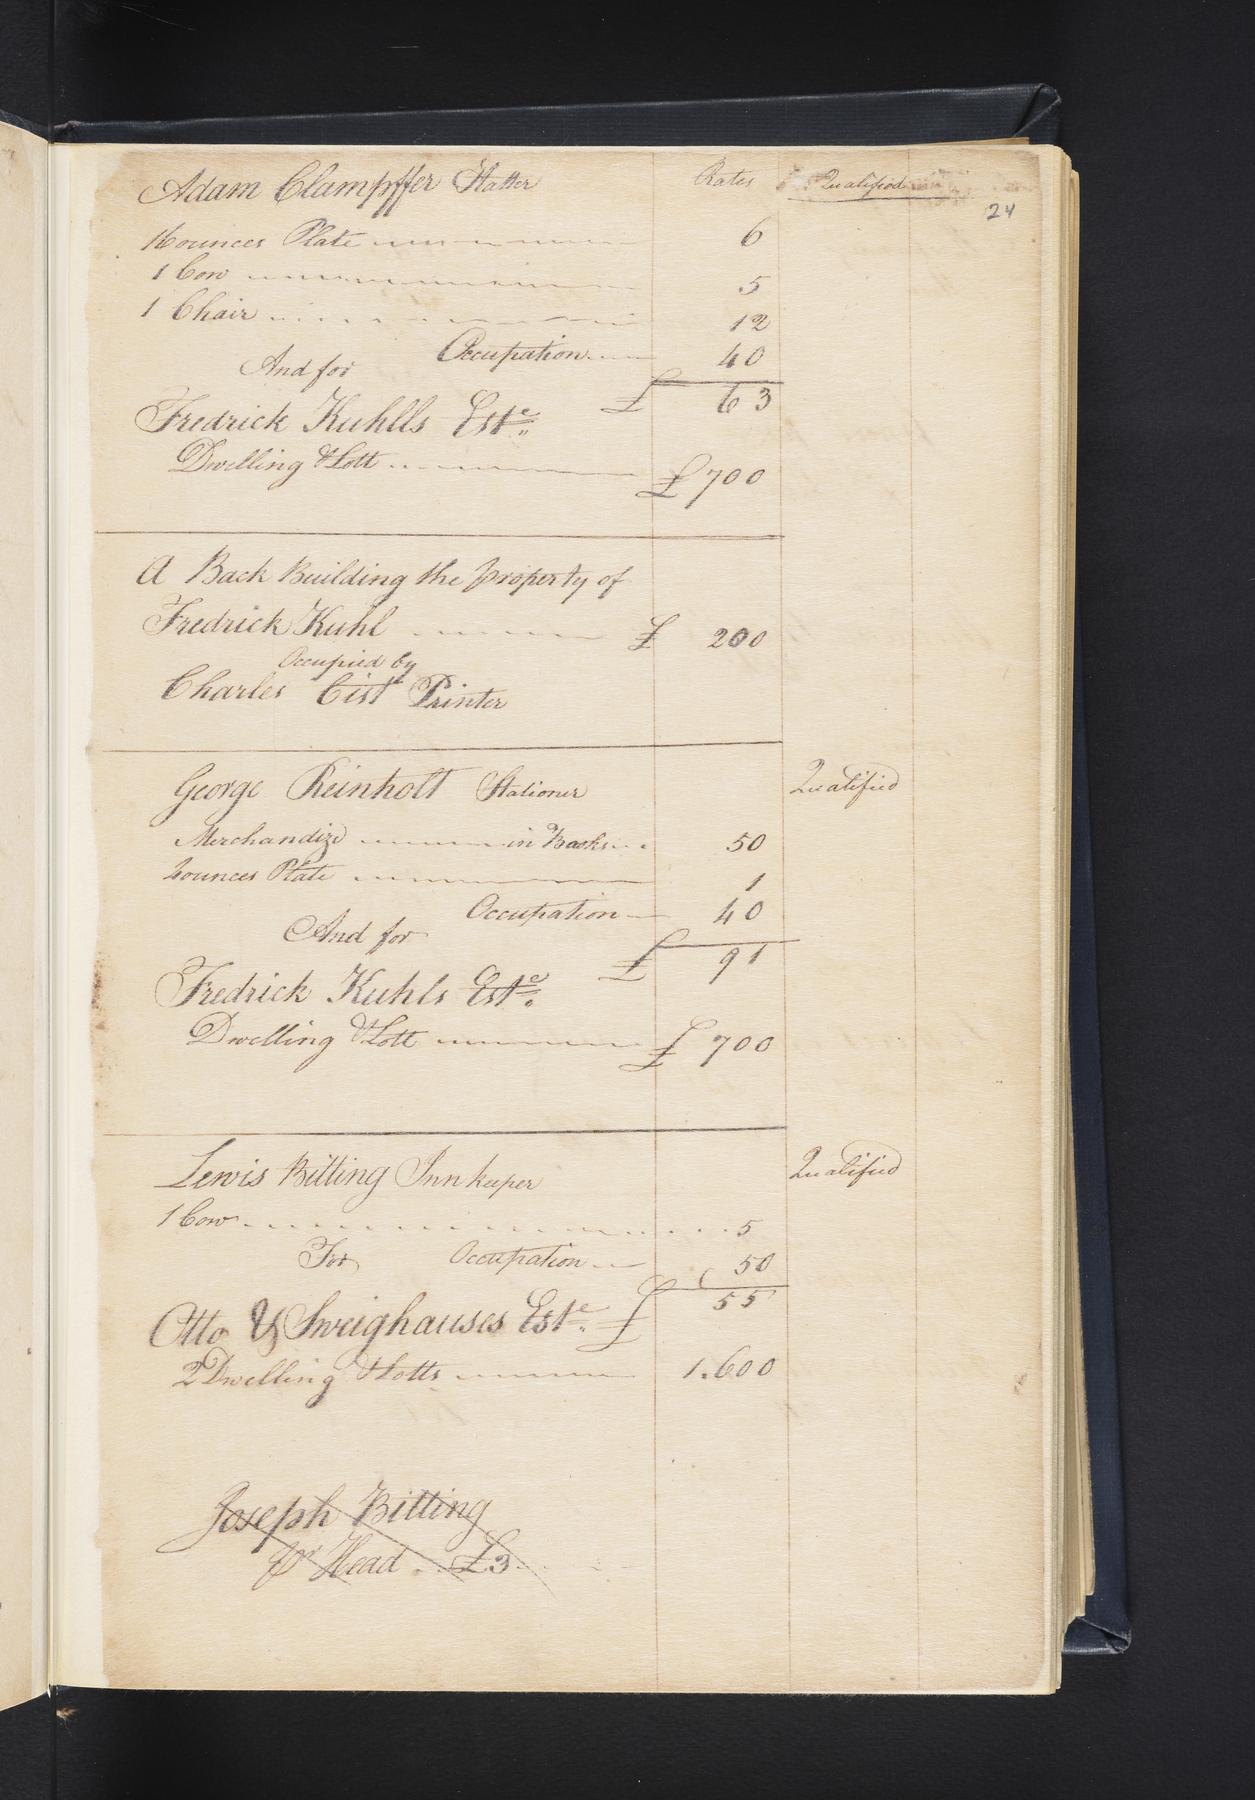 Adam Clampffer Hatter Rates Qualified
24
16 ounces Plate 6
1 Cow 5
1 Chair 12
Occupation 40
And for £ 63
Fredrick Kuhlls Este
Dwelling & Lott £ 700
A Back Building the property of
Fredrick Kuhl £ 200
Occupied by
Charles Cist Printer
George Reinholt Stationer Qualified
Merchandize in Books 50
4 ounces Plate 1
Occupation 40
And for £ 91
Fredrick Kuhls Este
Dwelling & Lott £ 700
Lewis Bitting Innkeeper Qualified
1 Cow 5
For Occupation 50
£ 55
Otto & Sweighauses Este
2 Dwelling & Lotts 1.600
Joseph Bitting
for Head £3